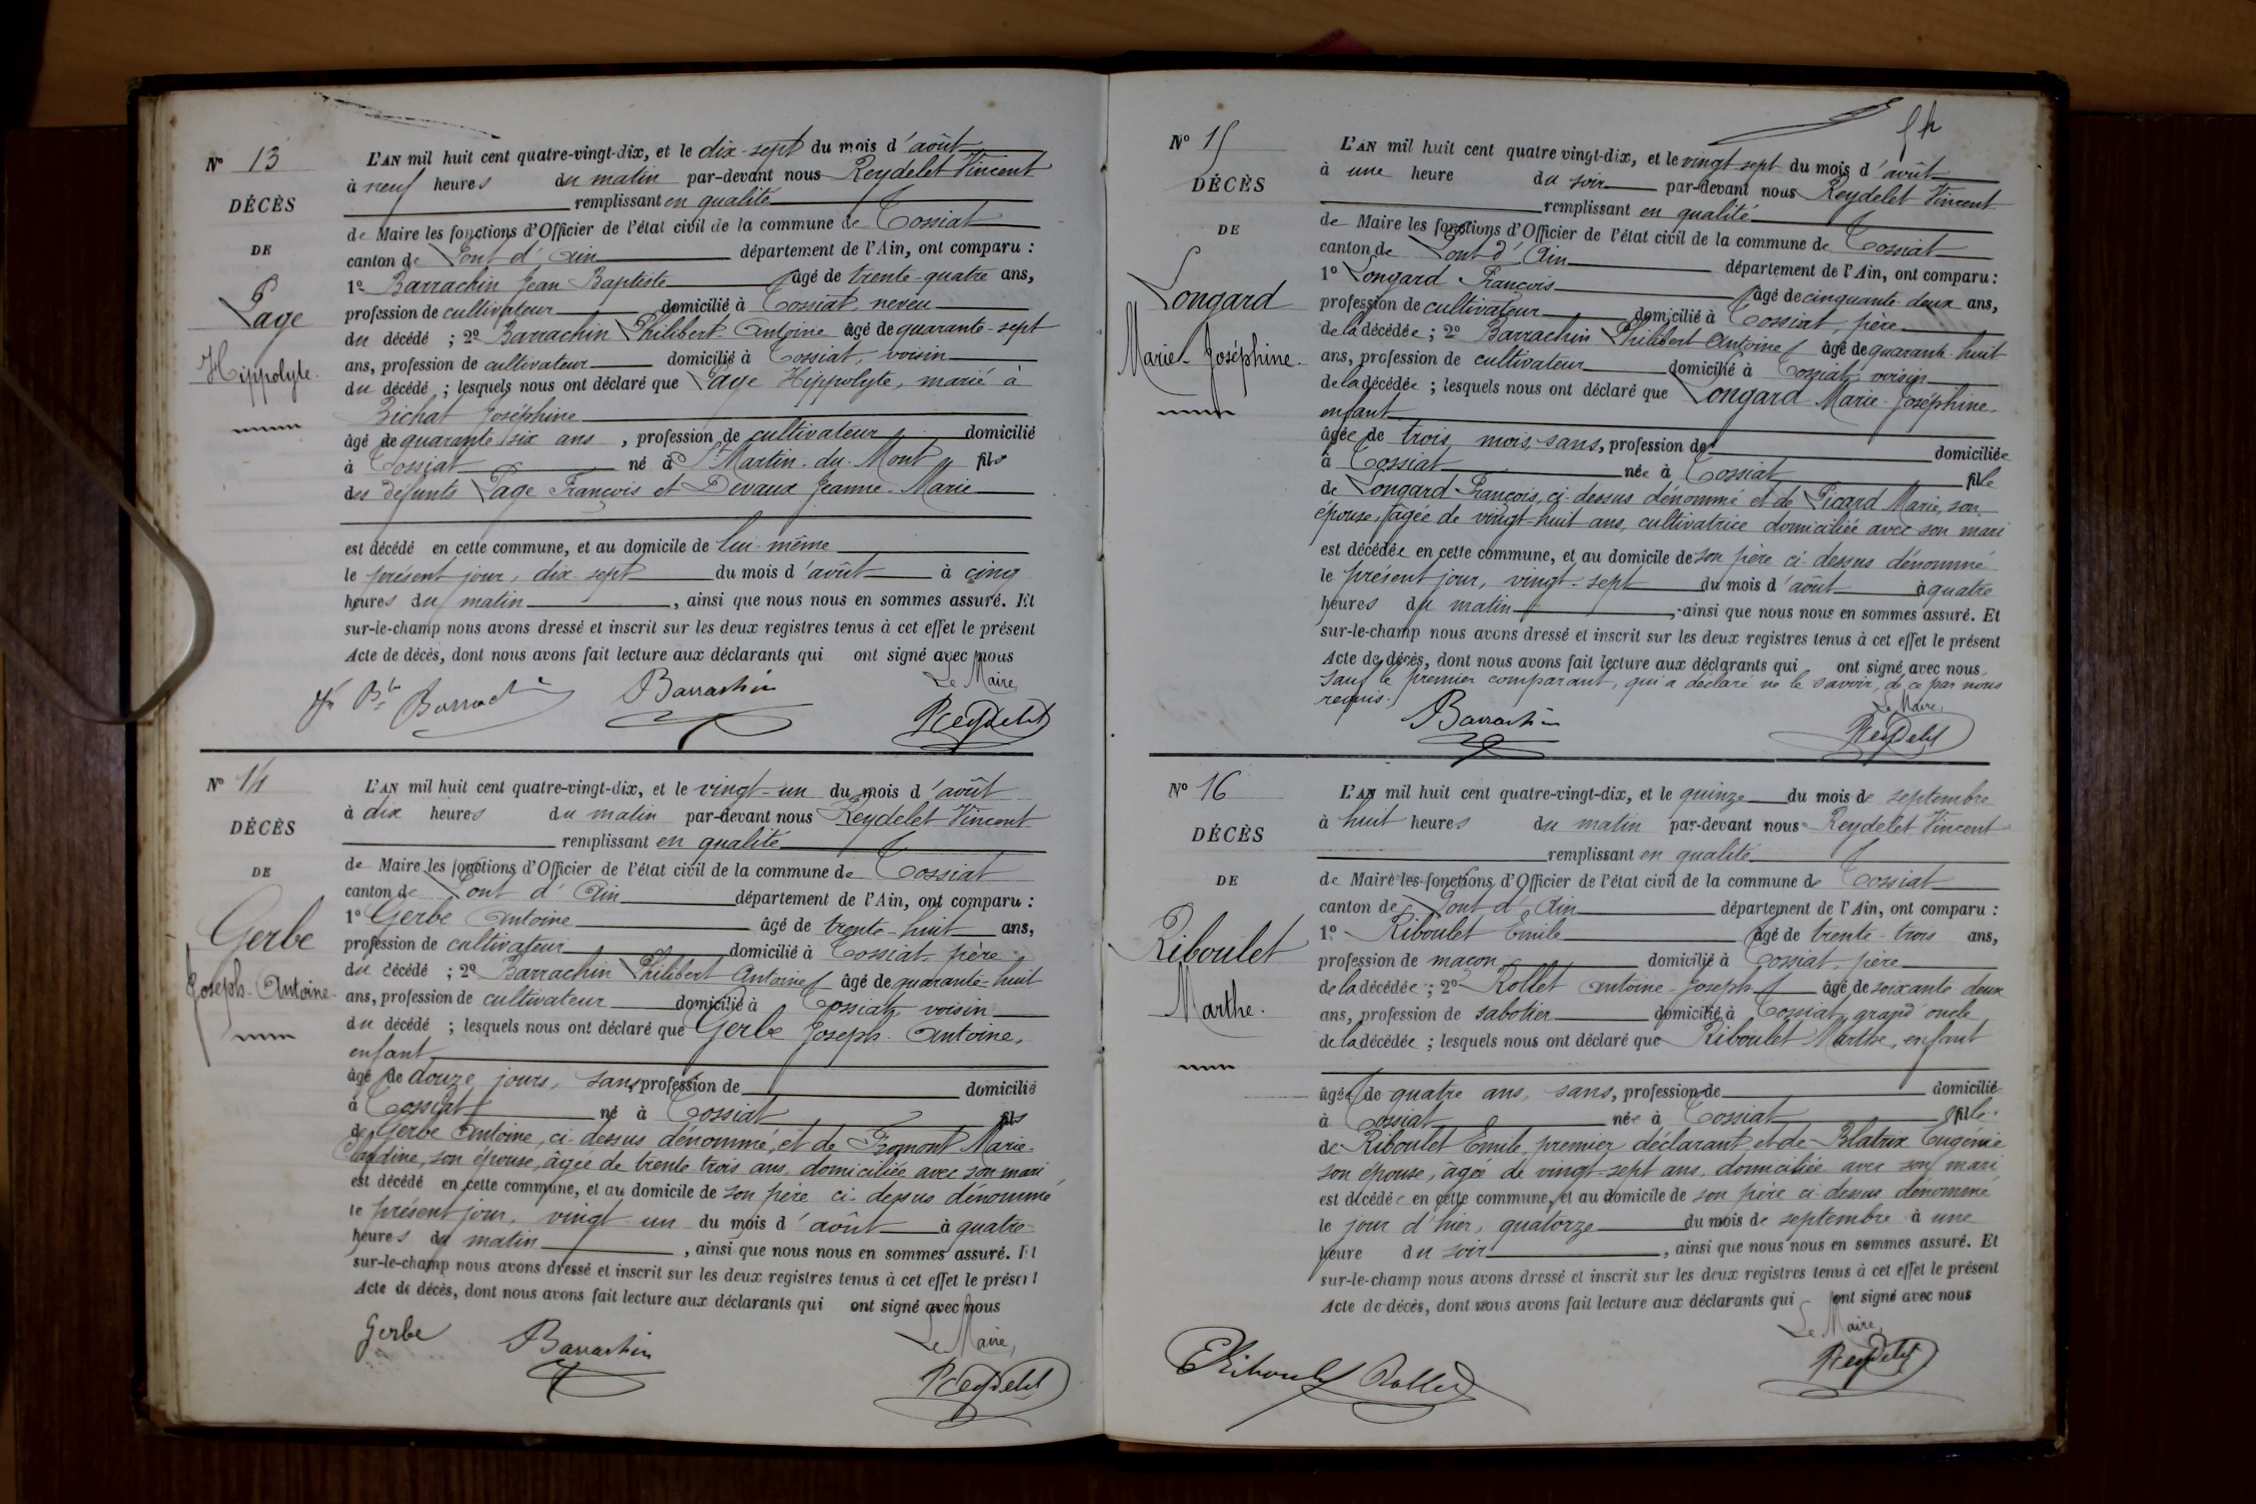 N° 13
DÉCÈS
DE
Page
Hippolyte.
L'AN mil huit cent quatre-vingt-dix, et le dix-sept du mois d'août
à neuf heures du matin par-devant nous Reydelet Vincent
remplissant en qualité
de Maire les fonctions d'Officier de l'état civil de la commune de Tossiat
canton de Pont d'Ain département de l'Ain, ont comparu :
1° Barrachin Jean Baptiste âgé de trente-quatre ans,
profession de cultivateur domicilié à Tossiat, neveu
du décédé ; 2° Barrachin Philibert Antoine âgé de quarante-sept
ans, profession de cultivateur domicilié à Tossiat, voisin
du décédé ; lesquels nous ont déclaré que Page Hippolyte, marié à
Bichat Joséphine
âgé de quarante six ans, profession de cultivateur domicilié
à Tossiat né à St Martin-du-Mont fils
des défunts Page François et Devaux Jeanne-Marie
est décédé en cette commune, et au domicile de lui-même
le présent jour, dix-sept du mois d'août à cinq
heures du matin, ainsi que nous nous en sommes assuré. Et
sur-le-champ nous avons dressé et inscrit sur les deux registres tenus à cet effet le présent
Acte de décès, dont nous avons fait lecture aux déclarants qui ont signé avec nous
Le Maire,
Barrachin Reydelet
N° 14
DÉCÈS
DE
Gerbe
Joseph-Antoine.
L'AN mil huit cent quatre-vingt-dix, et le vingt-un du mois d'août
à dix heures du matin par-devant nous Reydelet Vincent
remplissant en qualité
de Maire les fonctions d'Officier de l'état civil de la commune de Tossiat
canton de Pont d'Ain département de l'Ain, ont comparu :
1° Gerbe Antoine âgé de trente-huit ans,
profession de cultivateur domicilié à Tossiat, père
du décédé ; 2° Barrachin Philibert Antoine âgé de quarante-huit
ans, profession de cultivateur domicilié à Tossiat, voisin
du décédé ; lesquels nous ont déclaré que Gerbe Joseph-Antoine,
enfant
âgé de douze jours, sans profession de domicilié
à Tossiat né à Tossiat fils
de Gerbe Antoine, ci-dessus dénommé, et de Fromont Marie-
Claudine, son épouse, âgée de trente trois ans, domiciliée avec son mari
est décédé en cette commune, et au domicile de son père ci-dessus dénommé
le présent jour, vingt-un du mois d'août à quatre
heures du matin, ainsi que nous nous en sommes assuré. Et
sur-le-champ nous avons dressé et inscrit sur les deux registres tenus à cet effet le présent
Acte de décès, dont nous avons fait lecture aux déclarants qui ont signé avec nous
Le Maire,
Gerbe Barrachin Reydelet
N° 15
DÉCÈS
DE
Longard
Marie-Joséphine.
L'AN mil huit cent quatre vingt-dix, et le vingt sept du mois d'août
à une heure du soir par-devant nous Reydelet Vincent
remplissant en qualité
de Maire les fonctions d'Officier de l'état civil de la commune de Tossiat
canton de Pont d'Ain département de l'Ain, ont comparu :
1° Longard François âgé de cinquante-deux ans,
profession de cultivateur domicilié à Tossiat, père
de la décédée ; 2° Barrachin Philibert Antoine âgé de quarante-huit
ans, profession de cultivateur domicilié à Tossiat, voisin
de la décédée ; lesquels nous ont déclaré que Longard Marie-Joséphine,
enfant
âgée de trois mois, sans, profession de domiciliée
à Tossiat née à Tossiat fille
de Longard François, ci-dessus dénommé et de Picard Marie, son
épouse, âgée de vingt-huit ans, cultivatrice domiciliée avec son mari
est décédée en cette commune, et au domicile de son père ci-dessus dénommé
le présent jour, vingt-sept du mois d'août à quatre
heures du matin, ainsi que nous nous en sommes assuré. Et
sur-le-champ nous avons dressé et inscrit sur les deux registres tenus à cet effet le présent
Acte de décès, dont nous avons fait lecture aux déclarants qui ont signé avec nous
sauf le premier comparant, qui a déclaré ne le savoir, de ce par nous
requis.
Le Maire,
Barrachin Reydelet
N° 16
DÉCÈS
DE
Riboulet
Marthe.
L'AN mil huit cent quatre-vingt-dix, et le quinze du mois de septembre
à huit heures du matin par-devant nous Reydelet Vincent
remplissant en qualité
de Maire les fonctions d'Officier de l'état civil de la commune de Tossiat
canton de Pont d'Ain département de l'Ain, ont comparu :
1° Riboulet Emile âgé de trente-trois ans,
profession de maçon domicilié à Tossiat, père
de la décédée ; 2° Rollet Antoine-Joseph âgé de soixante-deux
ans, profession de sabotier domicilié à Tossiat, grand'oncle
de la décédée ; lesquels nous ont déclaré que Riboulet Marthe, enfant
âgée de quatre ans, sans, profession de domicilié
à Tossiat née à Tossiat fille
de Riboulet Emile, premier déclarant et de Blatrix Eugénie
son épouse, âgée de vingt-sept ans, domiciliée avec son mari
est décédée en cette commune, et au domicile de son père ci-dessus dénommé
le jour d'hier, quatorze du mois de septembre à une
heure du soir, ainsi que nous nous en sommes assuré. Et
sur-le-champ nous avons dressé et inscrit sur les deux registres tenus à cet effet le présent
Acte de décès, dont nous avons fait lecture aux déclarants qui ont signé avec nous
Le Maire,
ERiboulet Rollet Reydelet